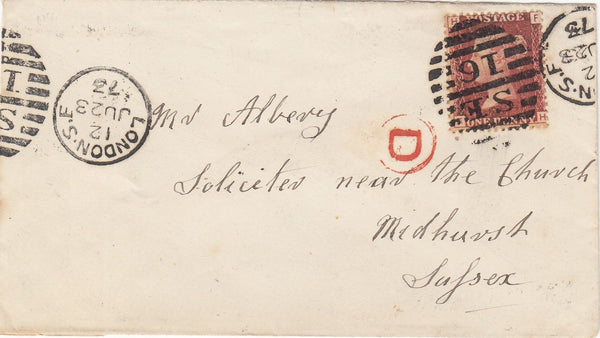 LONDON·S.E
12
JU23
73
S
1
POSTAGE
F
SE
16
ONE PENNY
H
N·S.E
2
U23
73
Mr Albery
D
Soliciter near the Church
Midhurst
Sussex